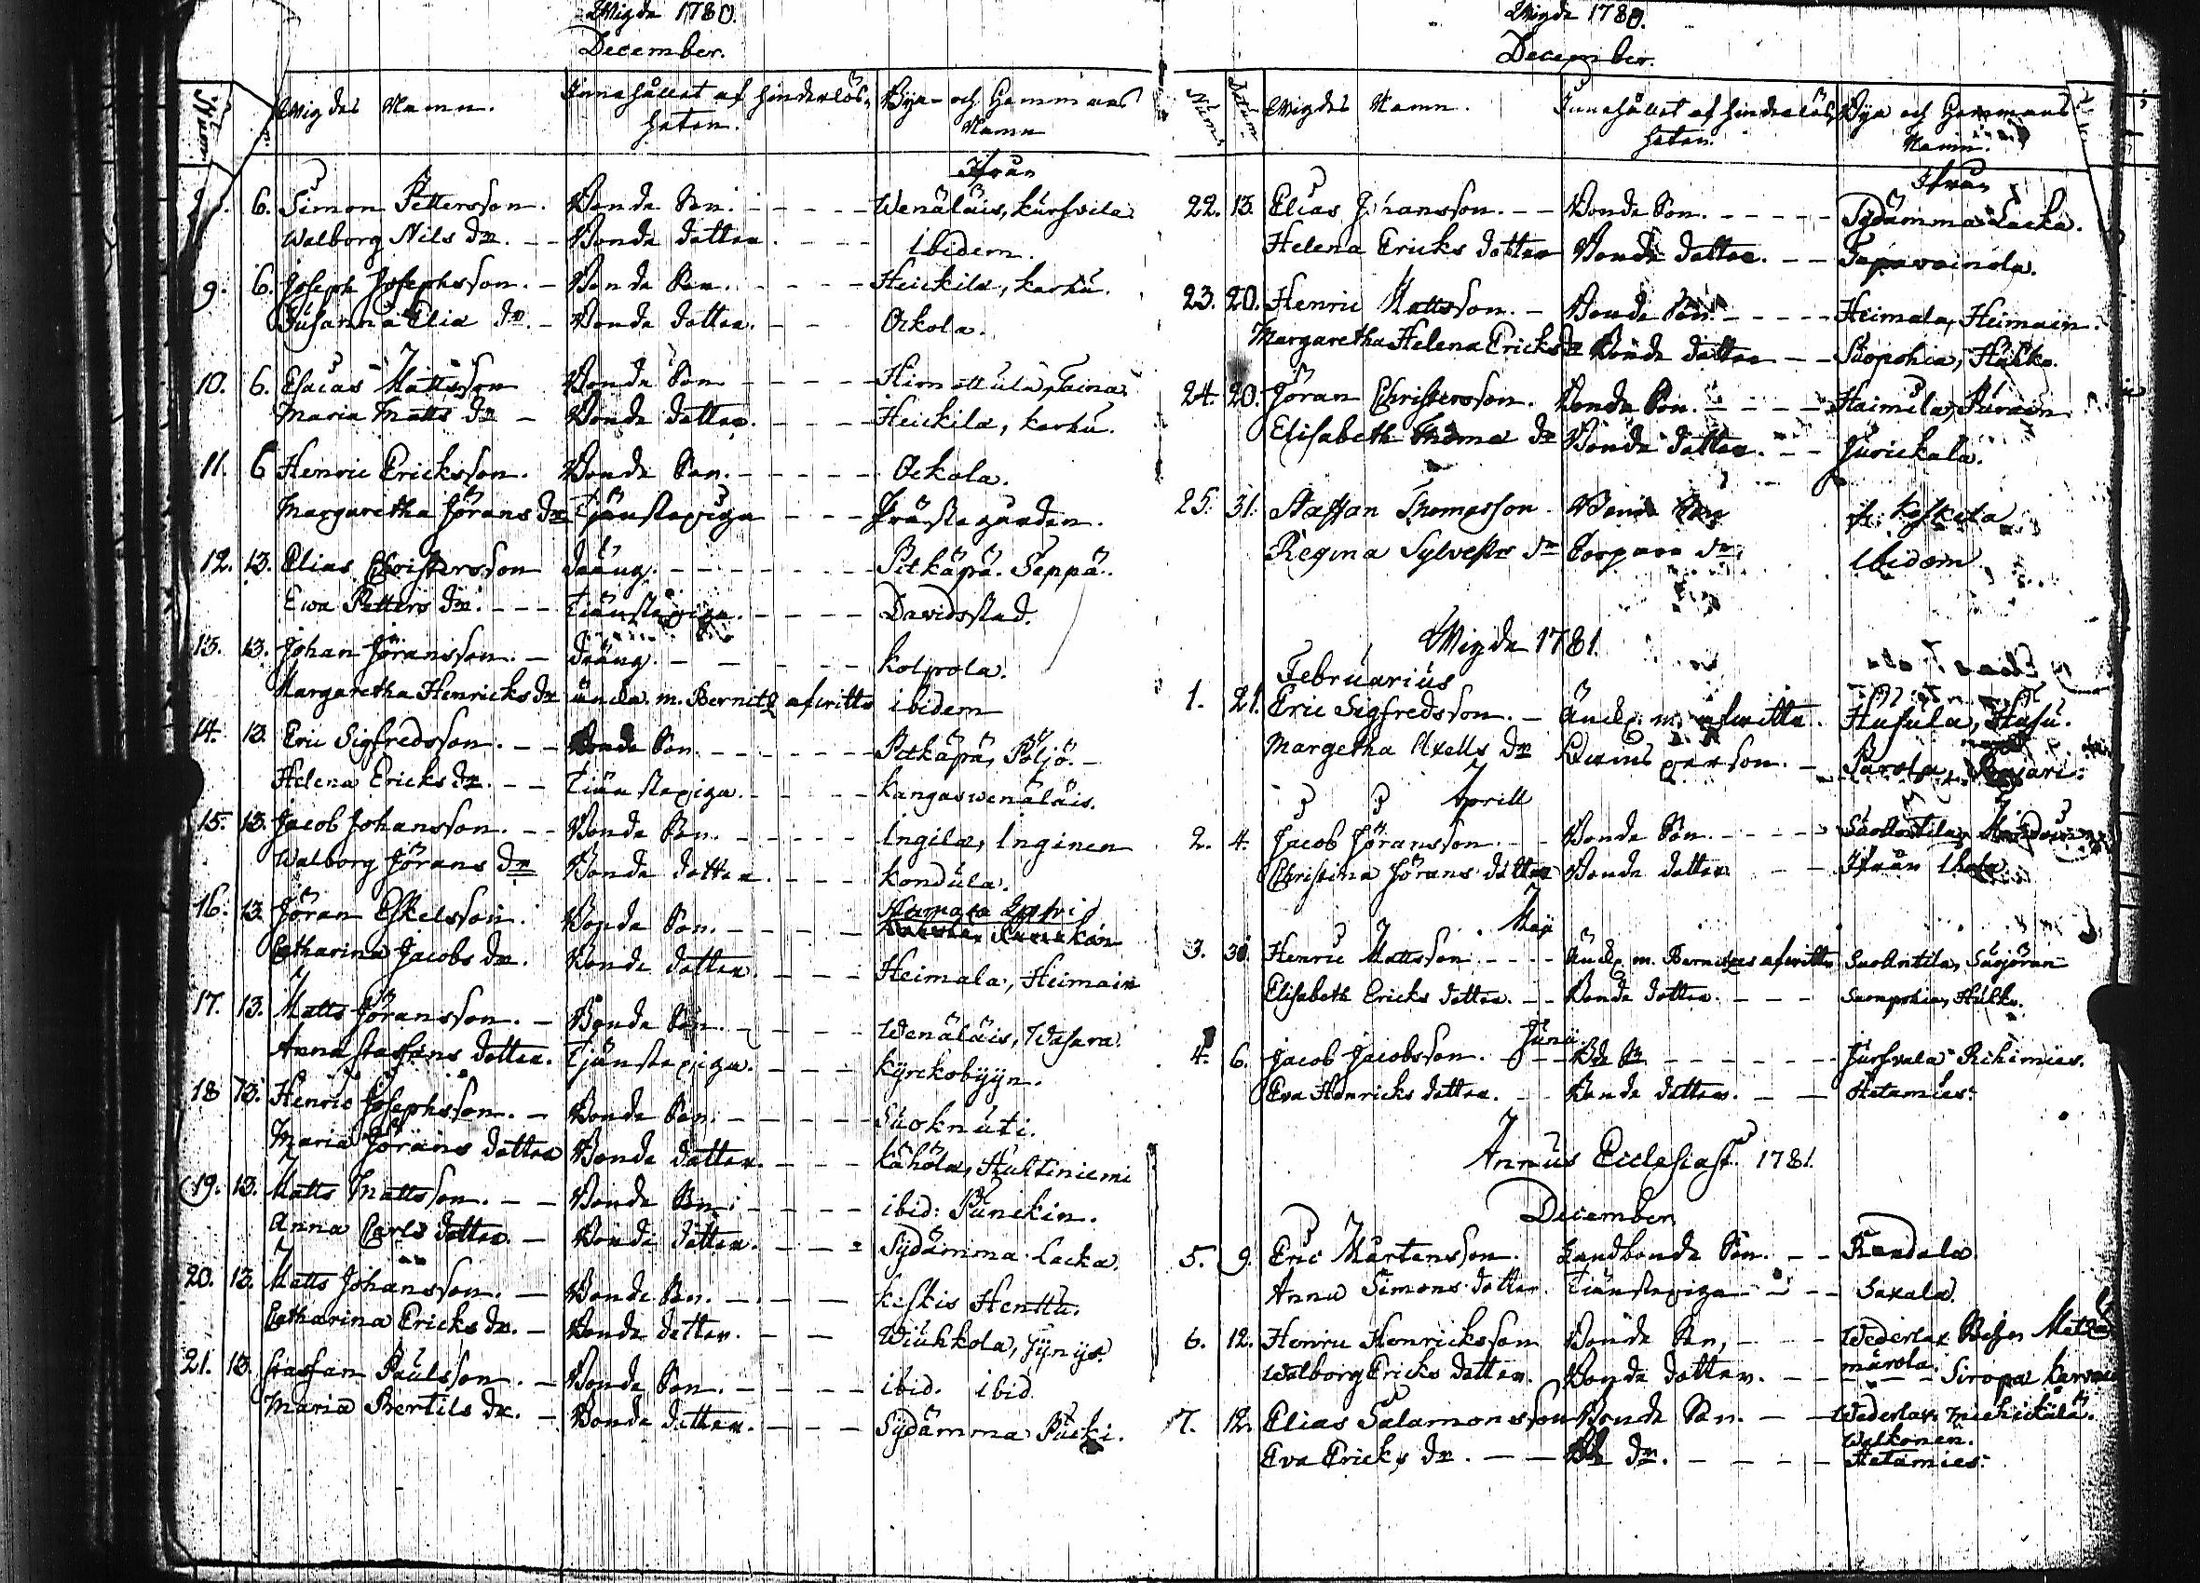 Wigde 1780.
December.
Wigdes Namn. Innehållet af hinderlös- Bya- och Hemmans
heten. Namn
Ifrån
6. Simon Pettersson. Bonde Son. Wenäläis, Kurfvila
Walborg Nils dr. Bonde dotter. Ibidem.
9. 6. Joseph Josephsson. Bonde Son. Heickila, Karhu.
Susanna Elia dr. Bonde dotter. Ockola.
10. 6. Esaias Mattsson Bonde Son Himottula, Taina
Maria Matts dr Bonde dotter. Heickila, Karhu.
11. 6 Henric Ericksson. Bonde Son. Ockola.
Margaretha Jörans dr Tjänstepiga Prästegården.
12. 13. Elias Christersson dräng. Pitkäpä. Seppä.
Ewa Petters dr. Tiänstepiga. Davidsstad.
13. 13. Johan Jöransson. dräng. Kolprola.
Margaretha Henricks dr äncka. m. Bernitz afwittr ibidem
14. 13. Eric Sigfredsson. Bonde Son. Pitkäpä, Pöljö.
Helena Ericks dr. Tiänstepiga. Kangaswenäläis.
15. 13. Jacob Johansson. Bonde Son. Ingila, Inginen
Walborg Jörans dr Bonde dotter. Kondula.
16. 13. Jöran Eskelsson. Bonde Son.
Catharina Jacobs dr. Bonde dotter. Heimala, Heimain
17. 13. Matts Jöransson. Bonde Son. Wenäläis, Wasara.
Anna Staffans dotter. Tjänstepiga. Kyrckobyyn.
18 13. Henric Josephsson. Bonde Son. Suoknuti.
Maria Jörans dotter Bonde dotter. Kähölä, Huhtiniemi
19. 13. Matts Mattsson. Bonde Son. ibid: Punckin.
Anna Carls dotter. Bonde dotter. Sydämma Lacka.
20. 13. Matts Johansson. Bonde Son. Kiskis Henttu.
Catharina Ericks dr. Bonde dotter. Wiuhkola, Jynys.
21. 13. Staffan Paulsson. Bonde Son. ibid. ibid.
Maria Bertils dr. Bonde dotter. Sydämma Pucki.
Wigde 1780.
December.
Num. Datum. Wigdes Namn. Innehållet af hinderlös Bya och Hemmans
heten. Namn.
Ifrån
22. 13. Elias Johansson. Bonde Son. Sydämma Lacka.
Helena Ericks dotter Bonde dotter. Tapavainola.
23. 20. Henric Mattsson. Bonde Son. Heimala, Heimain.
Margaretha Helena Ericks dr Bonde dotter Suopohia, Hulko.
24. 20. Jöran Christersson. Bonde Son. Haimila, Purain
Elisabeth Thoma dr Bonde dotter. Jurickala.
25. 31. Staffan Thomasson Bonde Son
Regina Sylvestr dr Torpare dr. Ibidem
Wigde 1781.
Februarius
1. 21. Eric Sigfredsson. Änckl. m. afwittr. Husula, Husu.
Margetha Axells dr Qwinsperson. Parola,
Aprill
2. 4. Jacob Jöransson. Bonde Son. SuoAntila,
Christina Jörans dotter Bonde dotter Ifrån Ihola
Maji
3. 30. Henric Mattsson Änckl. m. Bernitzes afwittr SuoAntila, Suojöran
Elisabeth Ericks dotter. Bonde dotter. Suonpohia, Hulko.
Junii
4. 6. Jacob Jacobsson. Bde Sn Jurfvala Rihimies.
Eva Henricks dotter. Bonde dotter. Hetamies.
Annus Ecclesiast. 1781.
December
5. 9. Eric Mårtensson. Landbonde Son. Randala.
Anna Simons dotter. Tiänstepiga Saxala.
6. 12. Henric Henricksson Bonde Son,
Walborg Ericks dotter. Bonde dotter.
7. 12. Elias Salamonsson Bonde Son. Wederlax
Walkonen.
Eva Ericks dr. dr. Hetamies.